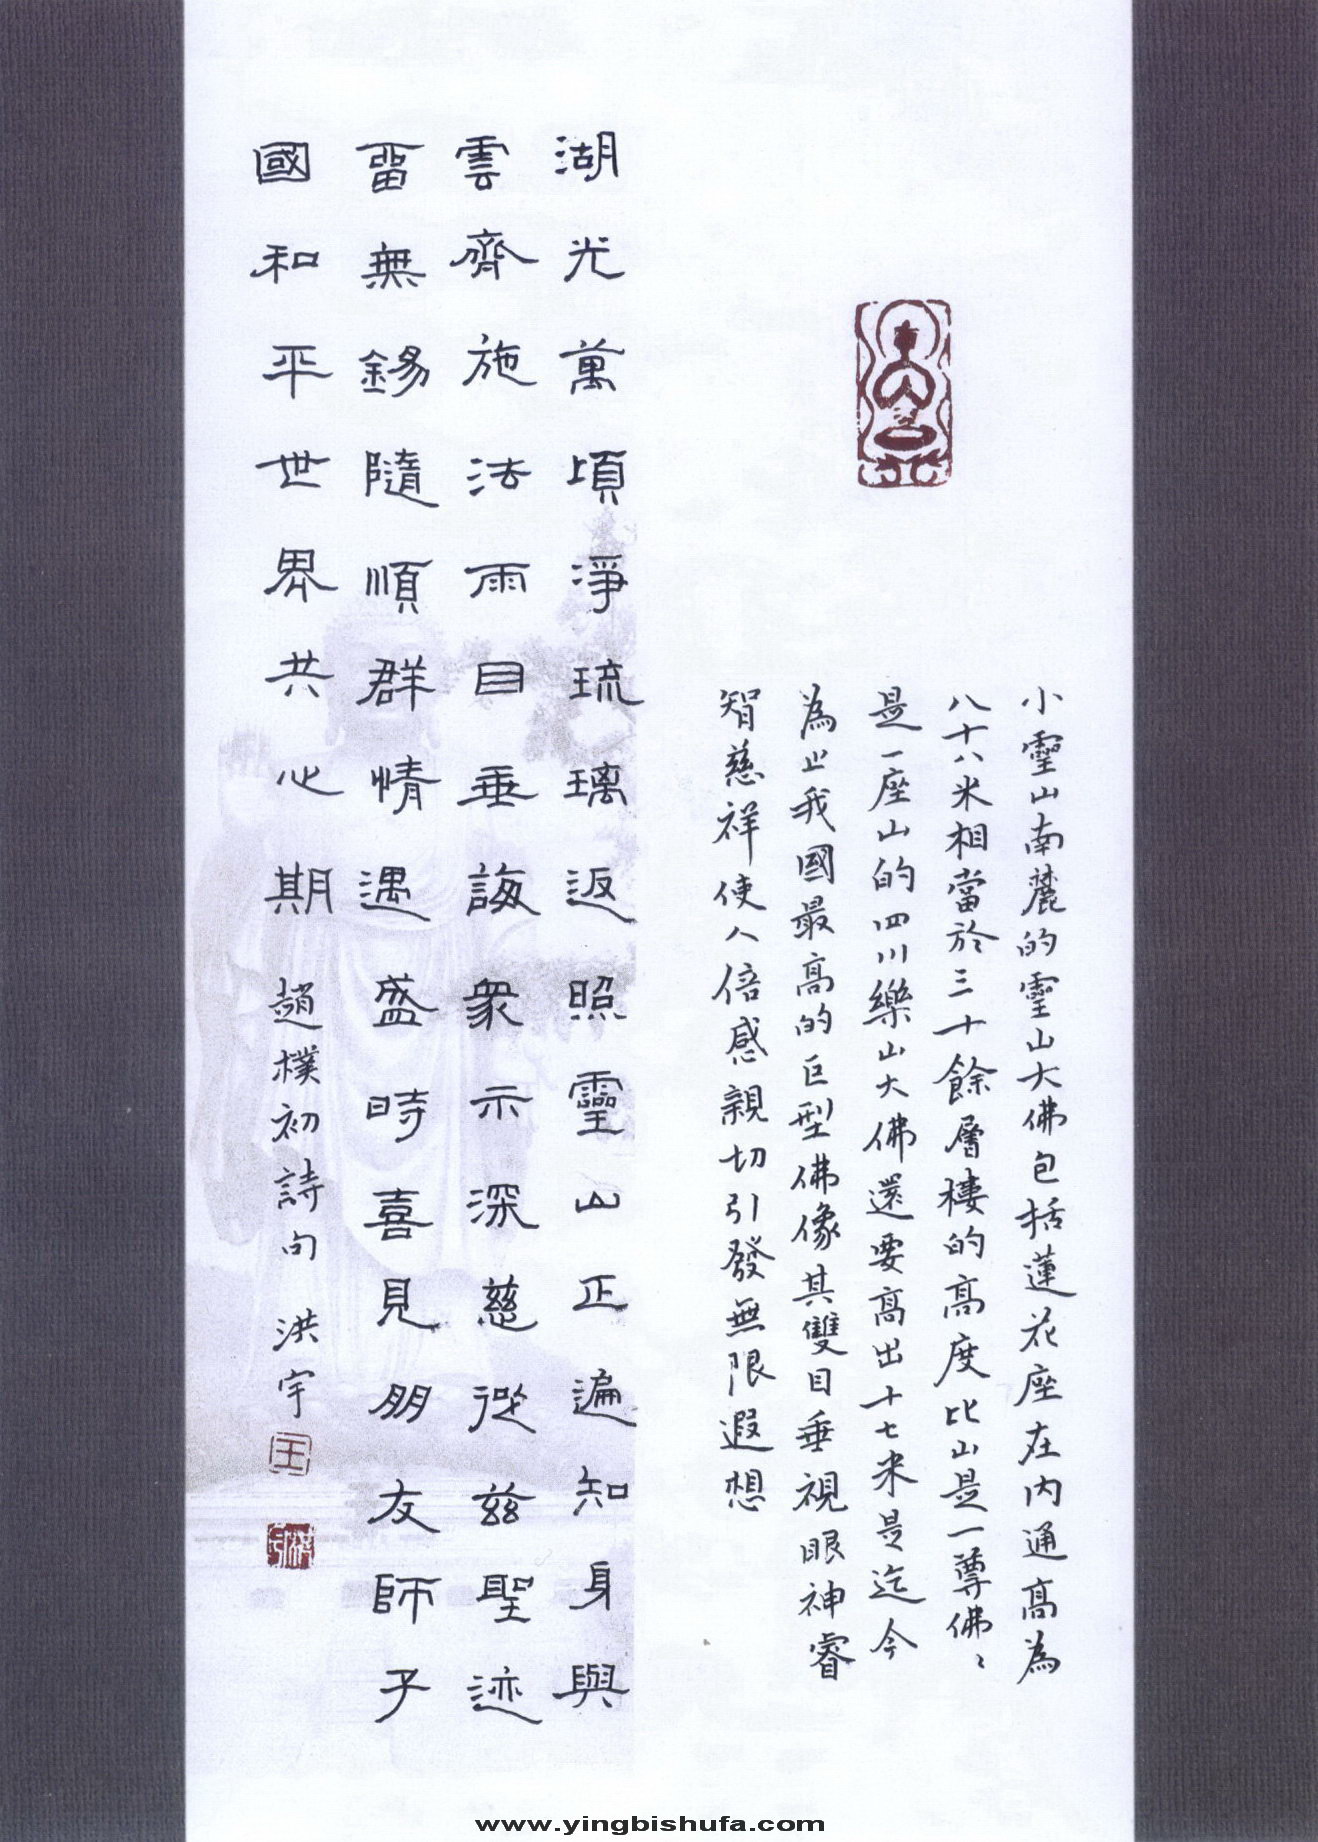 小靈山南麓的靈山大佛包括蓮花座在内通高為
八十八米相當於三十餘層樓的高度比山是一尊佛〻
是一座山的四川樂山大佛還要高出十七米是迄今
為止我國最高的巨型佛像其雙目垂視眼神睿
智慈祥使人倍感親切引發無限遐想
湖光萬頃淨琉璃返照靈山正遍知身與
雲齊施法雨目垂誨衆示深慈從兹聖迹
留無錫隨順群情遇盛時喜見朋友師子
國和平世界共心期 趙樸初詩句 洪宇
王
www.yingbishufa.com